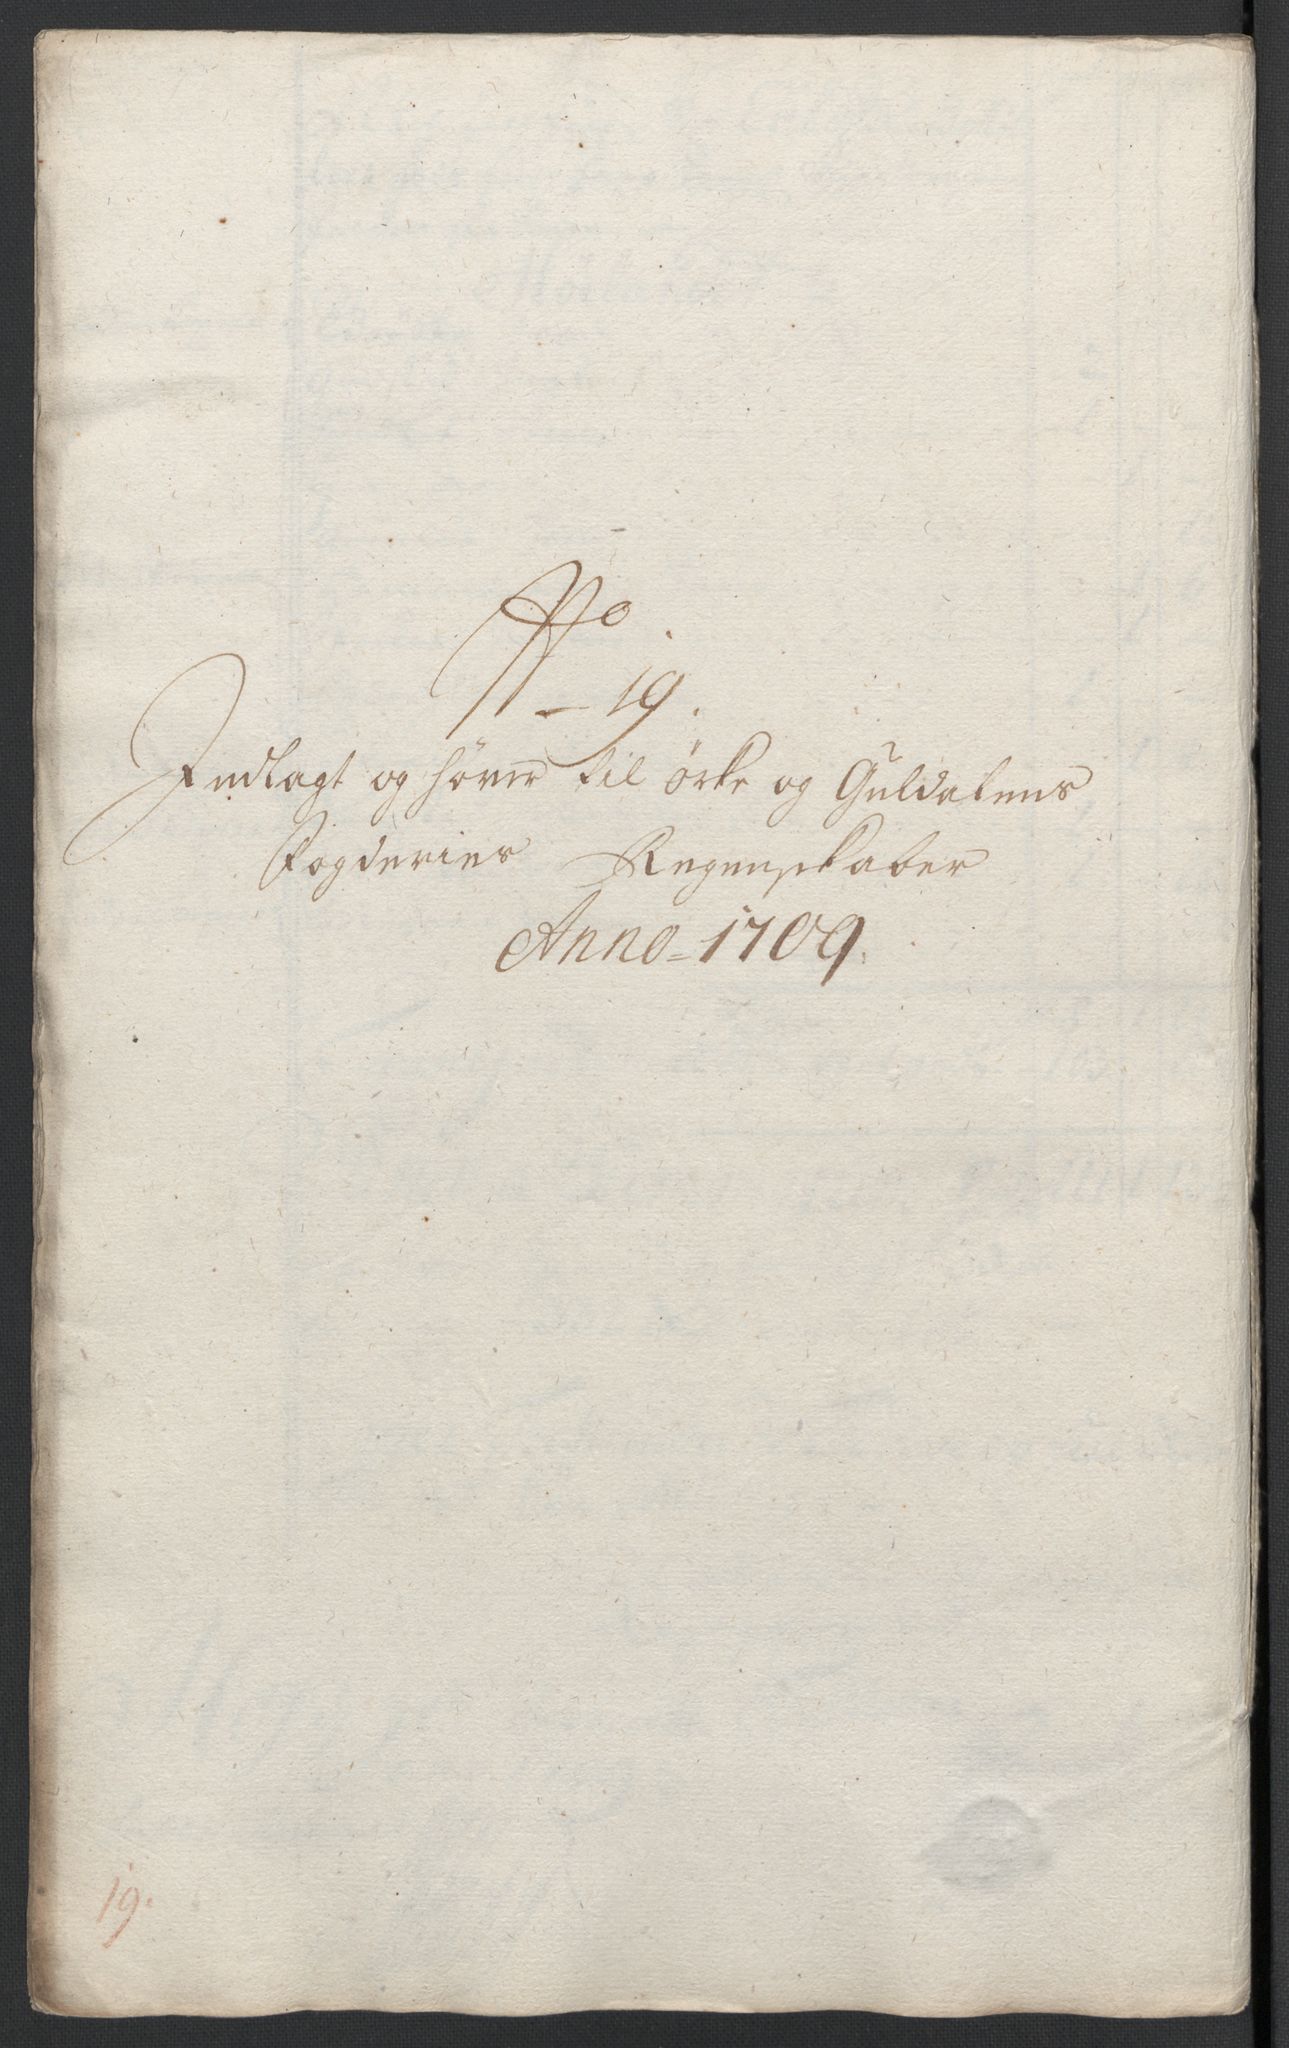 No
19.
Indlagt og hører til Ørke og Guldalens
Fogderies Regenskaber
Anno = 1709.
19.